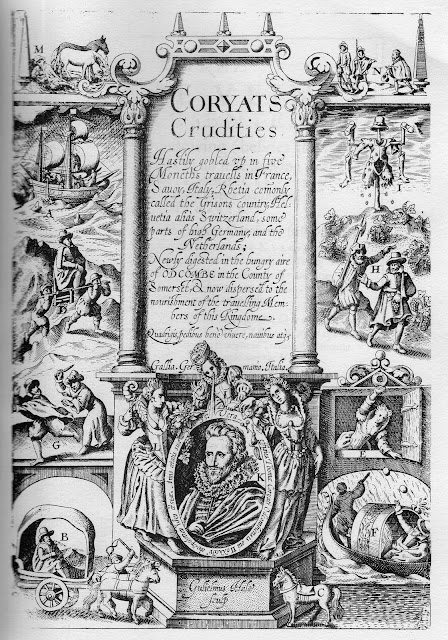 M
CORYATS
Crudities
Hastily gobled vp in five
Moneths trauells in France,
Sauoy, Italy, Rhetia comonly
called the Grisons country, Hel-
uetia aliàs Switzerland, some
parts of high Germany, and the
Netherlands;
Newly digested in the hungry aire
of ODCOMBE in the County of
Somerset, & now dispersed to the
nourishment of the trauelling Mem-
bers of this Kingdome.
Quadrigis, pedibus bene viuere, nauibus atq.
Gallia. Ger mania. Italia.
A
I
H
G
E
B
K
F
Gulielmus Hole
sculp